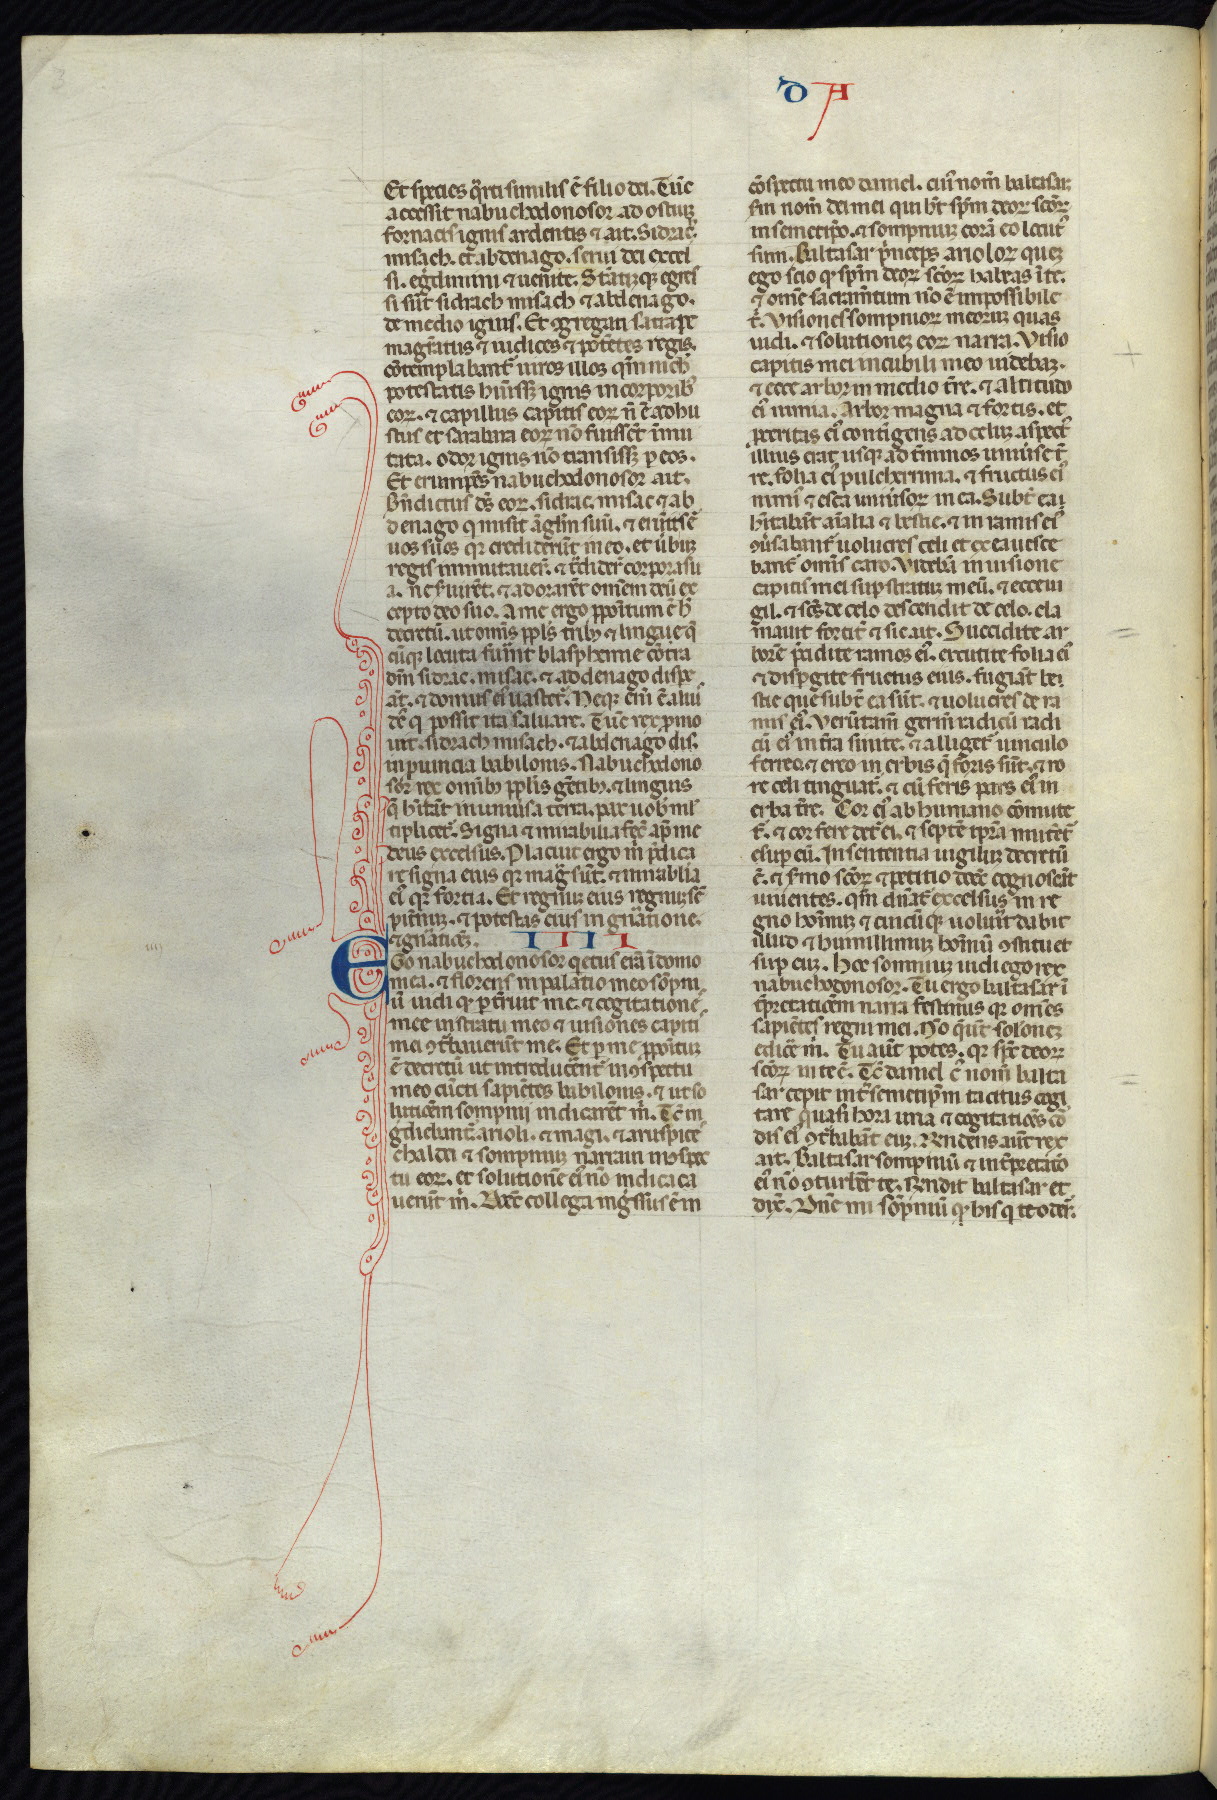 D A
Et species q̃rti similis ē filio dei. Tūc
accessit nabuchodonosor ad ostiuꝫ
fornacis ignis ardentis ⁊ ait. Sidrac̃.
misach. et̃ abdenago. serui dei excel
si. eg̃dimini ⁊ uenite. Statiꝫqꝫ egres
si sūt sidrach misach ⁊ abdenago.
de medio ignis. Et ꝯgregati satrape
mag̃tratus ⁊ iudices ⁊ potētes regis.
cōtemplabant̃ uiros illos qm̃ nich̃
potestatis hūissꝫ ignis in corporibꝫ
eoꝝ. ⁊ capillus capitis eoꝝ ñ ē adhu
stus et sarabara eoꝝ nō fuissēt īmu
tata. odor ignis nō transissꝫ ꝑ eos.
Et erumpēs nabuchodonosor ait.
Bn̄dictus ds̄ eoꝝ. sidrac. misac ⁊ ab
denago q misit āglm̄ suū. ⁊ eruit s̃
uos suos qꝛ crediderūt in eo. et ūbuꝫ
regis inmutauer̃. ⁊ t̃dider̃ corpora su
a. ne s̃uirēt. ⁊ adorarēt omēm deū ex
cepto deo suo. A me ergo ꝓpoitum ē h̃
decretū. ut omīs ppl̄s tribꝫ ⁊ lingue q̃
cūqꝫ locuta fūint blasphemie cōtra
dm̄ sidrac. misac. ⁊ addenago dispe
at̃. ⁊ domus eiꝰ uastet̃. Neqꝫ em̄ ē aliu
dē q possit ita saluare. Tūc rex ꝓmo
uit. sidrach misach. ⁊ abdenago dis.
in ꝓuincia babilonis. Nabuchodono
sor rex omībꝫ ppl̄is gētibꝫ. ⁊ linguis
q̃ hītāt in uniūsa terra. pax uob̃ ml̄
tiplicet̃. Signa ⁊ mirabilia fec̃ ap̃ me
deus excelsus. Placuit ergo m̃ p̄dica
re signa eius qꝛ mag̃ sūt. ⁊ mirablia
eiꝰ qꝛ fortia. Et regnuꝫ eius regnuꝫ sē
pit̃nuꝫ. ⁊ potestas eius in gn̄atione.
⁊ gn̄aticēꝫ. IIII
Ego nabuchodonosor q̄etus erā ī domo
mea. ⁊ florens in palatio meo sōpni
ū uidi qꝛ ꝑt̃ruit me. ⁊ cogitatione
mee in stratu meo ⁊ uisiones capiti
mei ꝯt̃bauerūt me. Et ꝑ me ꝓpoituꝫ
ē decretū ut introducērēt̃ in ꝯspectu
meo cūcti sapiētes babilonis. ⁊ ut so
luticēm sompnij indicarēt m̃. Tc̃ in
g̃diebant̃ arioli. ⁊ magi. ⁊ aruspice
chaldei ⁊ sompniuꝫ narraui in ꝯspec
tu eoꝝ. et solutionē eiꝰ nō indicaca
uerūt m̃. Donec̃ collega ing̃ssus ē in
cōspectu meo daniel. cui nom̄ baltasar.
sm̄ nom̄ dei mei qui hꝫ sp̄m deoꝝ scōꝝ
in semetip̃o. ⁊ sompniuꝫ corā eo locut̃
sum. Baltasar p̃nceps arioloꝝ queꝫ
ego scio qꝛ sp̄m deoꝝ scōꝝ habeas ī te.
⁊ om̄e sacram̄tum nō ē impossibile
t̃. Uisiones sompnioꝝ meoꝝ quas
uidi. ⁊ solutioneꝫ eoꝝ narra. Uisio
capitis mei in cubili meo uidebaꝫ.
⁊ ecce arbor in medio t̃re. ⁊ altitudo
eiꝰ nimia. Arbor magna ⁊ fortis. et
ꝓceritas eiꝰ contigens ad celuꝫ. aspect̃
illius erat usqꝫ ad t̃minos uniuse t̃
re. folia eiꝰ pulcherrima. ⁊ fructus eiꝰ
nimiꝰ ⁊ esca uniūsoꝝ in ea. Subt̃ eaꝫ
hītabāt aīalia ⁊ bestie. ⁊ in ramis eiꝰ
ꝯūsabant̃ uolucres celi et ex ea uesce
bant̃ omīs caro. Uidebā in uisione
capitis mei suꝑ stratuꝫ meū. ⁊ ecce ui
gil. ⁊ scs̄ de celo descendit de celo. cla
mauit fortit̃ ⁊ sic ait. Succidite ar
borē p̄cidite ramos eiꝰ. excutite folia eiꝰ
⁊ disꝑgite fructus eius. fugiāt bes
stie que subt̃ ea sūt. ⁊ uolucres de ra
mis eiꝰ. Uerūtam̄ germ̄ radicū radi
cū eiꝰ in t̃ra sinite. ⁊ alliget̃ uinculo
ferreo. ⁊ ereo in erbis q̃ foris sūt. ⁊ ro
re celi tinguat̃. ⁊ cū feris pars eiꝰ in
erba t̃re. Cor eiꝰ ab humano cōmute
t̃. ⁊ cor fere det̃ ei. ⁊ septē tp̄ra mutēt̃
e suꝑ eū. In sententia uigiliuꝫ decretū
ē. ⁊ s̃mo scōꝝ ⁊ petitio donec̃ cognoscāt
uiuentes. qm̄ dn̄at̃ excelsus in re
gno homīuꝫ ⁊ cuicūqꝫ uoluit̃ dabit
illud ⁊ humillimuꝫ homīū ꝯstituet
suꝑ euꝫ. Hoc somniuꝫ uidi ego rex
nabuchodonosor. Tu ergo baltasar ī
t̃pretaticēm narra festinus qꝛ om̄es
sapiētes regni mei. Nō q̃ūt solonēꝫ
edicē m̃. Tu aūt potes. qꝛ sp̄c deoꝝ
scōꝝ in te ē. Tc̃ daniel cꝰ nom̄ balta
sar cepit int̃ semetip̄m tacitus cogi
tare quasi hora una ⁊ cogitaticēs cō
dis eiꝰ ꝯt̃babāt euꝫ. Rn̄dens aūt rex
ait. Baltasar sompniū ⁊ int̃pretatō
eiꝰ nō ꝯturbēt te. Rn̄dit baltasar et
dix̃. Dn̄e mi sōpniū qꝛ his q te oder̃.